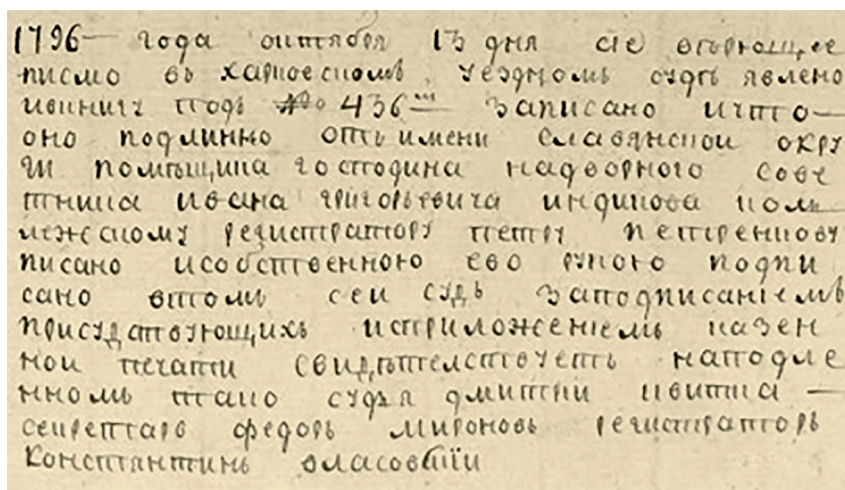 1796 — года октября 13 дня сіе вѣрющее
писмо въ харковскомъ уездномъ судѣ явлено
ивкнигу подъ № 436м — записано ичто —
оно подлинно отъ имени славянской окру
ги помѣщика господина надворного сове
тника ивана григорьевича индикова кол
лежскому регистратору петру петренкову
писано исобственною ево рукою подпи
сано втомъ сей судъ заподписаніемъ
присудствующихъ иприложениемъ казен
ной печати свидѣтелствуетъ наподле
нномъ тако судья дмитрій квитка —
секретарь федоръ мироновъ регистраторъ
константинъ власовскій